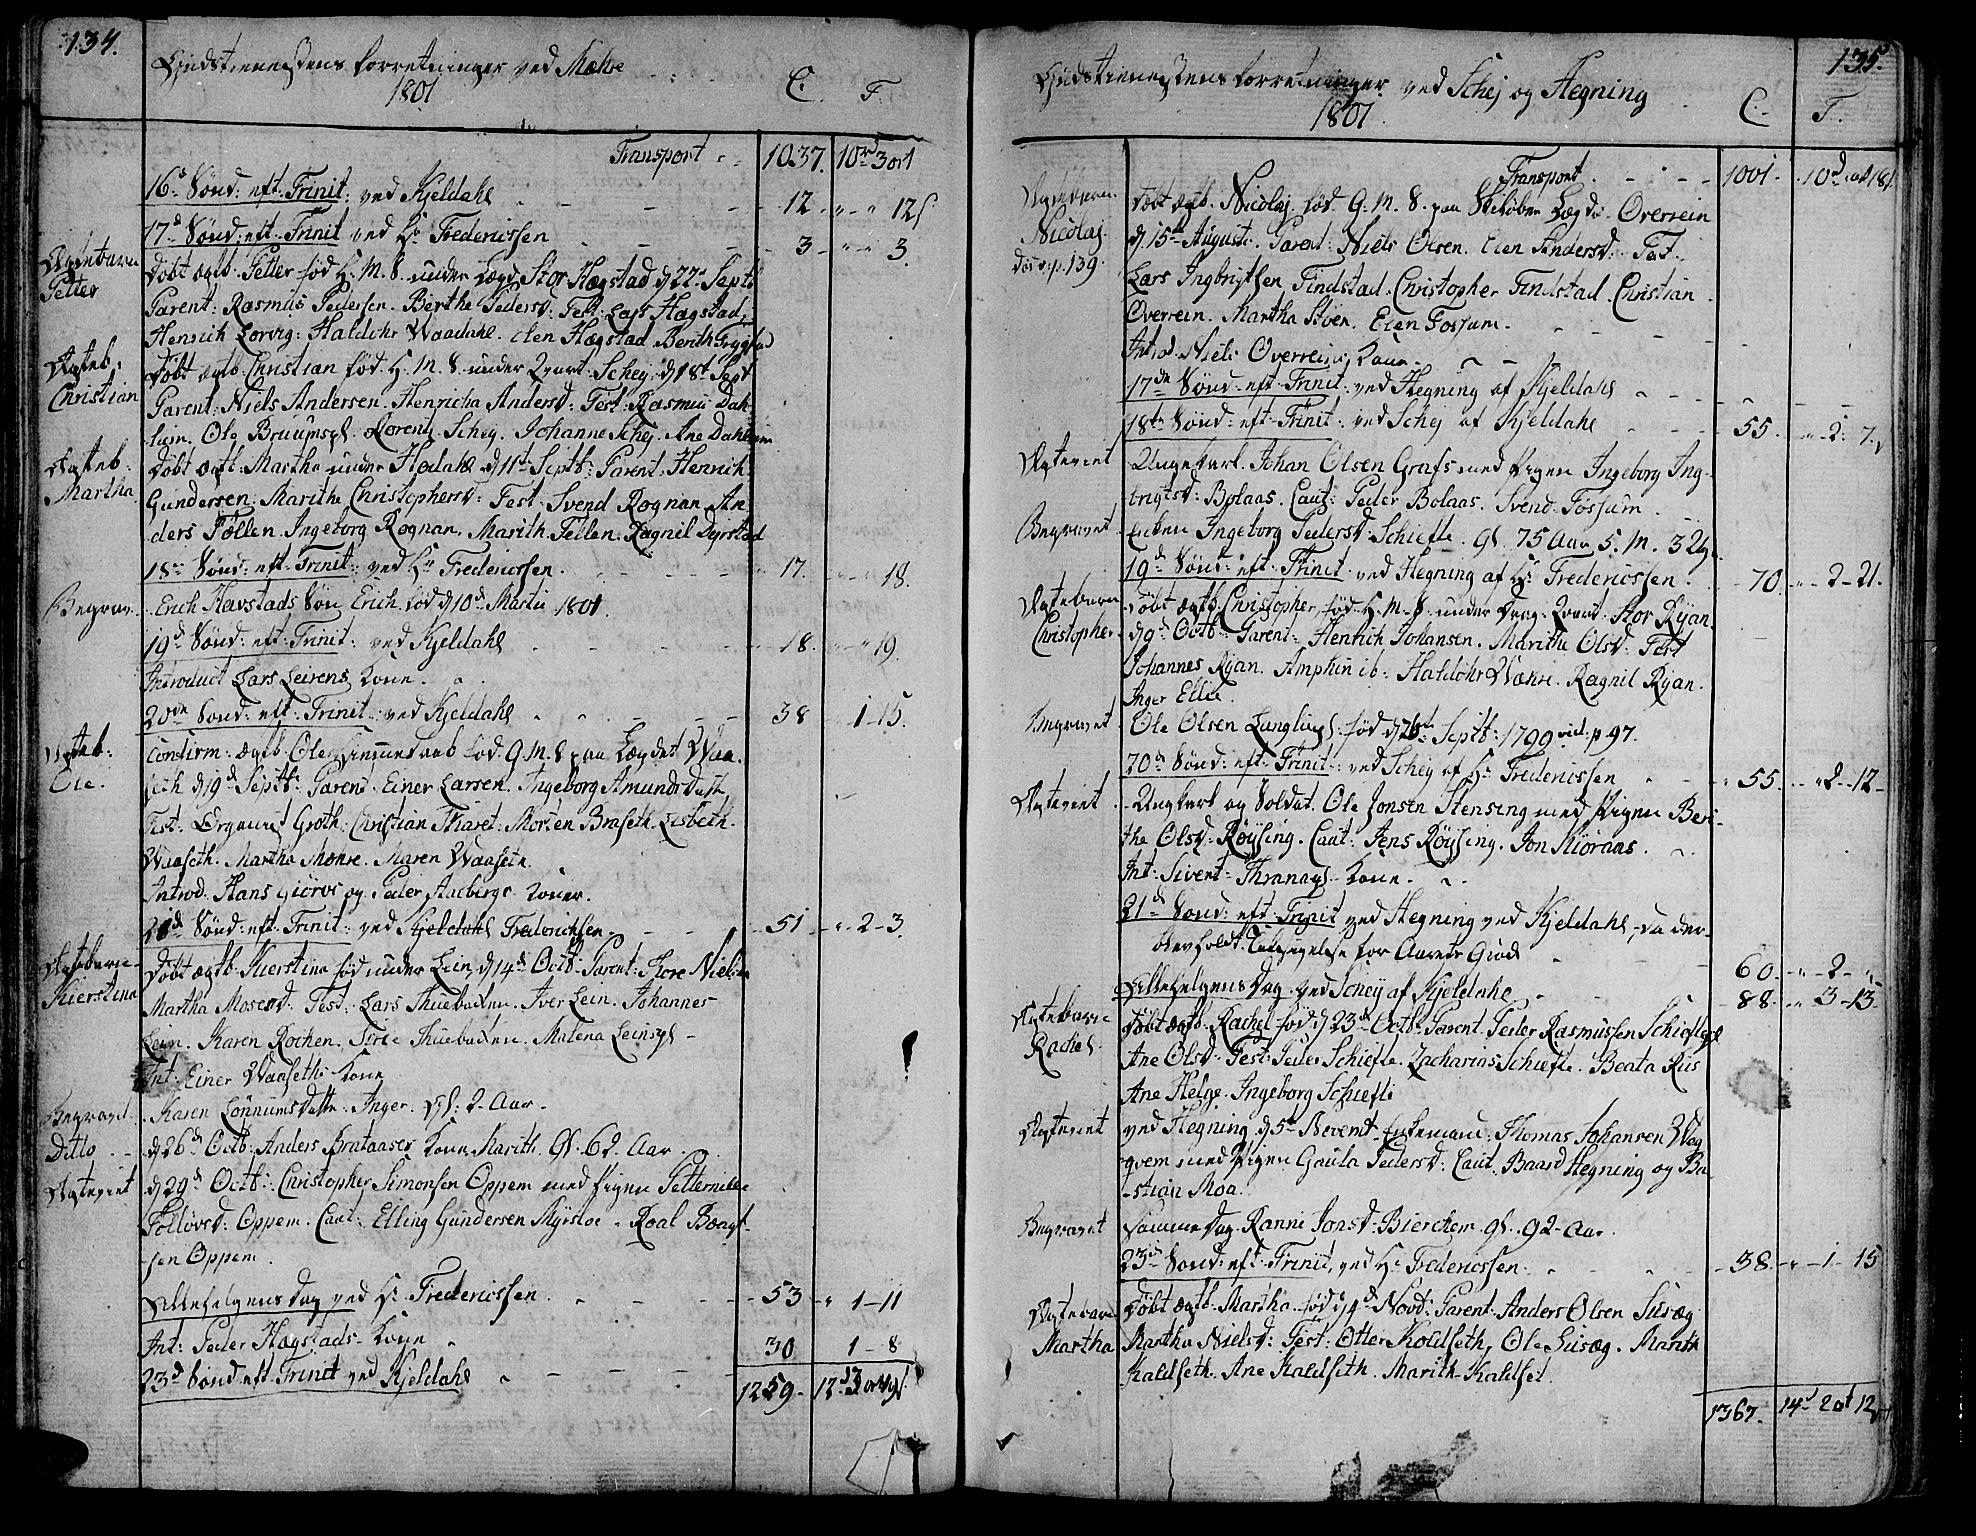 134.
Gudstienestens forretninger ved Mæhre
1801
C. T.
Transport 1037. 10rd 3 ort
16d Sønd: eft: Trinit: ved Kjeldahl 12 - " " 12 s
17d Sønd: eft: Trinit ved Hr Fredericssen 3 - " " 3.
Ægtebarn Døbt ægtb. Petter fød H. M. S. under Lægd Stor Hægstad d 22de Septb
Petter Parent: Rasmus Pedersen. Berthe Pedersd: Test: Lars Hægstad,
Henrich Lorvig: Haldohr Waadahl. Elen Hægstad Berith Trygstad
Ægteb: Døbt ægtb. Christian fød H. M. S. under Qvart. Schej. d 18t Sept
Christian Parent: Niels Andersen. Henricha Andersd: Test: Rasmus Dah-
liim. Ole Bruumspl. Lorentz Schej. Johanne Schej. Ane Dahliim
Ægteb: Døbt ægtb: Martha under Hodahl d 11t Septb: Parent: Henrich
Martha Gundersen. Marithe Christophersd: Test: Svend Rognan. An-
ders Fællen. Ingeborg Rognan. Marith Fellen. Ragnil Dyrstad
18de Sønd: eft: Trinit: ved Hr Fredericssen. 17. - " 18.
Begrav. Erich Havstads Søn Erich fød d 10d Martii 1801.
19d Sønd: eft: Trinit: ved Kjeldahl 18. - " 19.
Introduct Lars Leirens Kone.
20de Sønd: eft: Trinit: ved Kjeldahl 38 - 1 - 15.
Ægteb: Confirm: ægtb Ole hiemmedaab fød G. M. S paa Lægdet Waa-
Ole. seth d 19d Septb: Parent Einer Larsen. Ingeborg Amundsdatt.
Test: Ørgenius Groth: Christian Thiaret: Morten Braseth. Lisbeth
Waaseth. Martha Mæhre. Maren Waaseth.
Introd. Hans Giørvs og Peder Aalbergs Koner.
21d Sønd: eft: Trinit: ved Kjeldahl Fredericssen. 51 - " 2 - 3.
Ægtebarn Døbt ægtb. Kierstina fød under Lein d 14d Octb: Parent: Tore Nielsen
Kierstina Martha Mosesd: Test: Lars Thuebaeken. Iver Lein. Johannes
Lein. Karen Rochen. Siree Thuebacken. Malena Leinspl -
Int: Einer Waaseths Kone
Begraved. Karen Lønnumsdatte. Inger. Gl: 2 Aar.
Ditto d 26d Octb: Anders Brataaser Kone Marith. Gl. 62 Aar.
Ægteviet d 29d Octb: Christopher Simonsen Oppem med Pigen Petternille
Folløvsd: Oppem. Caut: Elling Gundersen Myrsloe. Roal Baagt-
sen Oppem.
Allehelgensdag ved Hr Fredericssen 53 - " 1 - 11
Int: Peder Hægstads Kone 30 1 - 8
23d Sønd: eft: Trinit ved Kjeldahl
1259 - 12rd 3 ort
135.
Gudstienestens forretninger ved Schej og Hegning
1801
C. T.
Transport 1001 - 10d ort 18 s
Ægtebarn Døbt ægtb. Nicolaj fød G. M. S. paa Lægds Overrein
Nicolaj. d 15de Augusti. Parent: Niels Olsen. Elen Andersd: Test.
p. 139. Lars Ingbrigtsen Findstad. Christopher Findstad. Christian
Overrein. Martha Støer. Elen Fossum.
Introd. Niels Overreins Kone.
17de Sønd: eft: Trinit: ved Hegning af Kjeldahl
18de Sønd: eft: Trinit: ved Schej af Kjeldahl 55. - " 2 - 7.
Ægteviet Ungekarl. Johan Olsen Grafs med Pigen Ingeborg Ing-
brigtsd: Bolaas. Caut: Peder Bolaas. Svend Fossum.
Begravet Enken Ingeborg Pedersd: Schiefte. Gl. 75 Aar 5. M. 3 Uge
19d Sønd: eft: Trinit: ved Hegning af Hr Fredericssen. 70. - " 2 - 21.
Ægtebarn Døbt ægtb. Christopher, fød H. M. S. under Qvart. Stor Ryan.
Christopher d 9d Octb: Parent: Henrich Johansen. Marithe Olsd: Test
Johannes Ryan. Haldohr Wæhre. Ragnil Ryan.
Inger Ellie.
Begravet Ole Olsen Lunglispl. fød d 26t Septb: 1799 vid: p 97.
20d Sønd: eft: Trinit: ved Schej af Hr Fredericssen 55. - " 2 - 12 -
Ægteviet Ungkarl og Soldat. Ole Jonsen Stensing med Pigen Beri-
the Olsd: Røyssing. Caut: Jens Røyssing. Jon Miøraas.
Int: Sivert Thranaspl. Kone.
21d Sønd: eft: Trinit ved Hegning ved Kjeldahl, da der
blev holdt Taksigelse for Aarets Grøde 60. - " 2 - "
Allehelgensdag ved Schej af Kjeldahl 88. - " 3 - 13.
Ægtebarn Døbt ægtb. Rachel fød d 23d Octb: Parent: Peder Rasmussen Schieftepl
Rachel Ane Olsd: Test: Peder Schiefte. Zacharias Schiefte. Beata Riis
Ane Helge. Ingeborg Schiefte
Ægteviet ved Hegning d 5te Novemb. Enkemand: Thomas Johansen Wag-
qvem med Pigen Gaula Pedersd: Caut: Baard Hegning og Ba-
stian Moa.
Begravet samme Dag. Ranni Jonsd. Bierchem. gl. 92 Aar.
23d Sønd: eft: Trinit, ved Hr Fredericssen 38. - " 1 - 15
Ægtebarn Døbt ægtb. Martha. fød d 4d Novb: Parent: Anders Olsen Susæg
Martha Martha Nielsd: Test: Otter Koldseth, Ole Susæg. Marith
Kaldseth. Ane Kaldseth. Marith Kaldset.
1367. 14d 2 ort 12